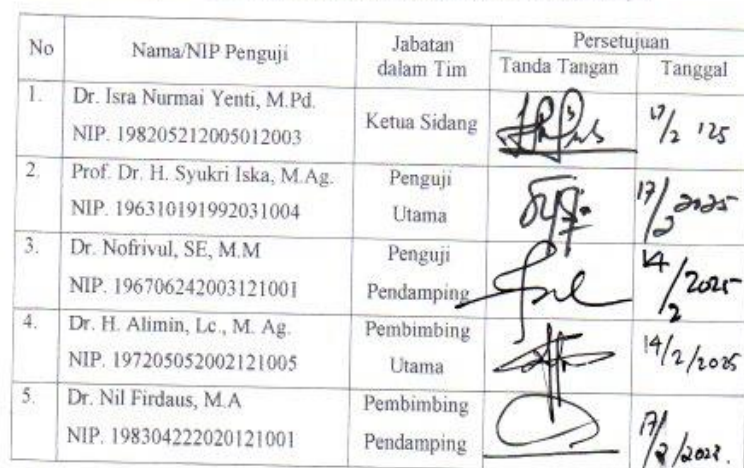 No Nama/NIP Penguji Jabatan dalam Tim Persetujuan
Tanda Tangan Tanggal
1. Dr. Isra Nurmai Yenti, M.Pd.
NIP. 198205212005012003
Ketua Sidang
17/2 '25
2. Prof. Dr. H. Syukri Iska, M.Ag.
NIP. 196310191992031004
Penguji
Utama
17/2 2025
3. Dr. Nofrivul, SE, M.M
NIP. 196706242003121001
Penguji
Pendamping
14/2 2025
4. Dr. H. Alimin, Lc., M. Ag.
NIP. 197205052002121005
Pembimbing
Utama
14/2/2025
5. Dr. Nil Firdaus, M.A
NIP. 198304222020121001
Pembimbing
Pendamping